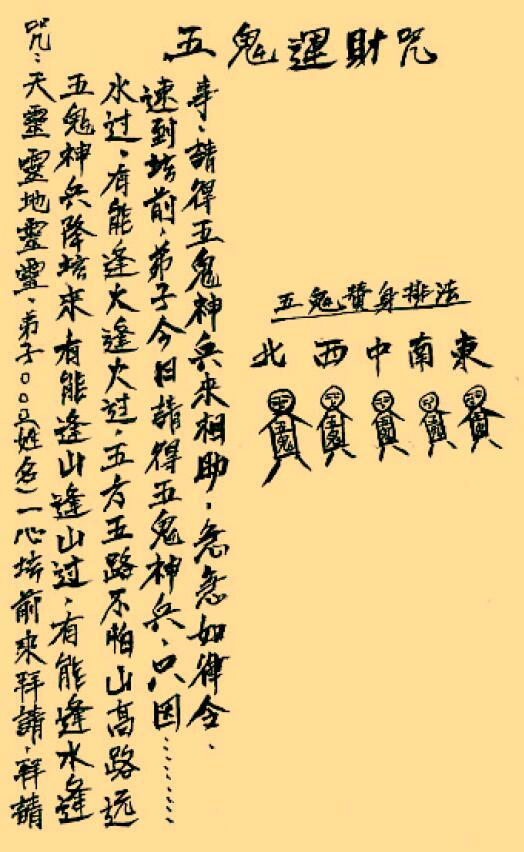 五鬼運財咒
咒：天靈靈地靈靈、弟子○○○(姓名)一心坛前來拜請、拜請
五鬼神兵降坛來有能逢山逢山过、有能逢水逢
水过、有能逢火逢火过、五方五路不怕山高路远
速到坛前、弟子今日請得五鬼神兵、只因………
事、請得五鬼神兵來相助、急急如律令、
五鬼賛身排法
北西中南東
五鬼